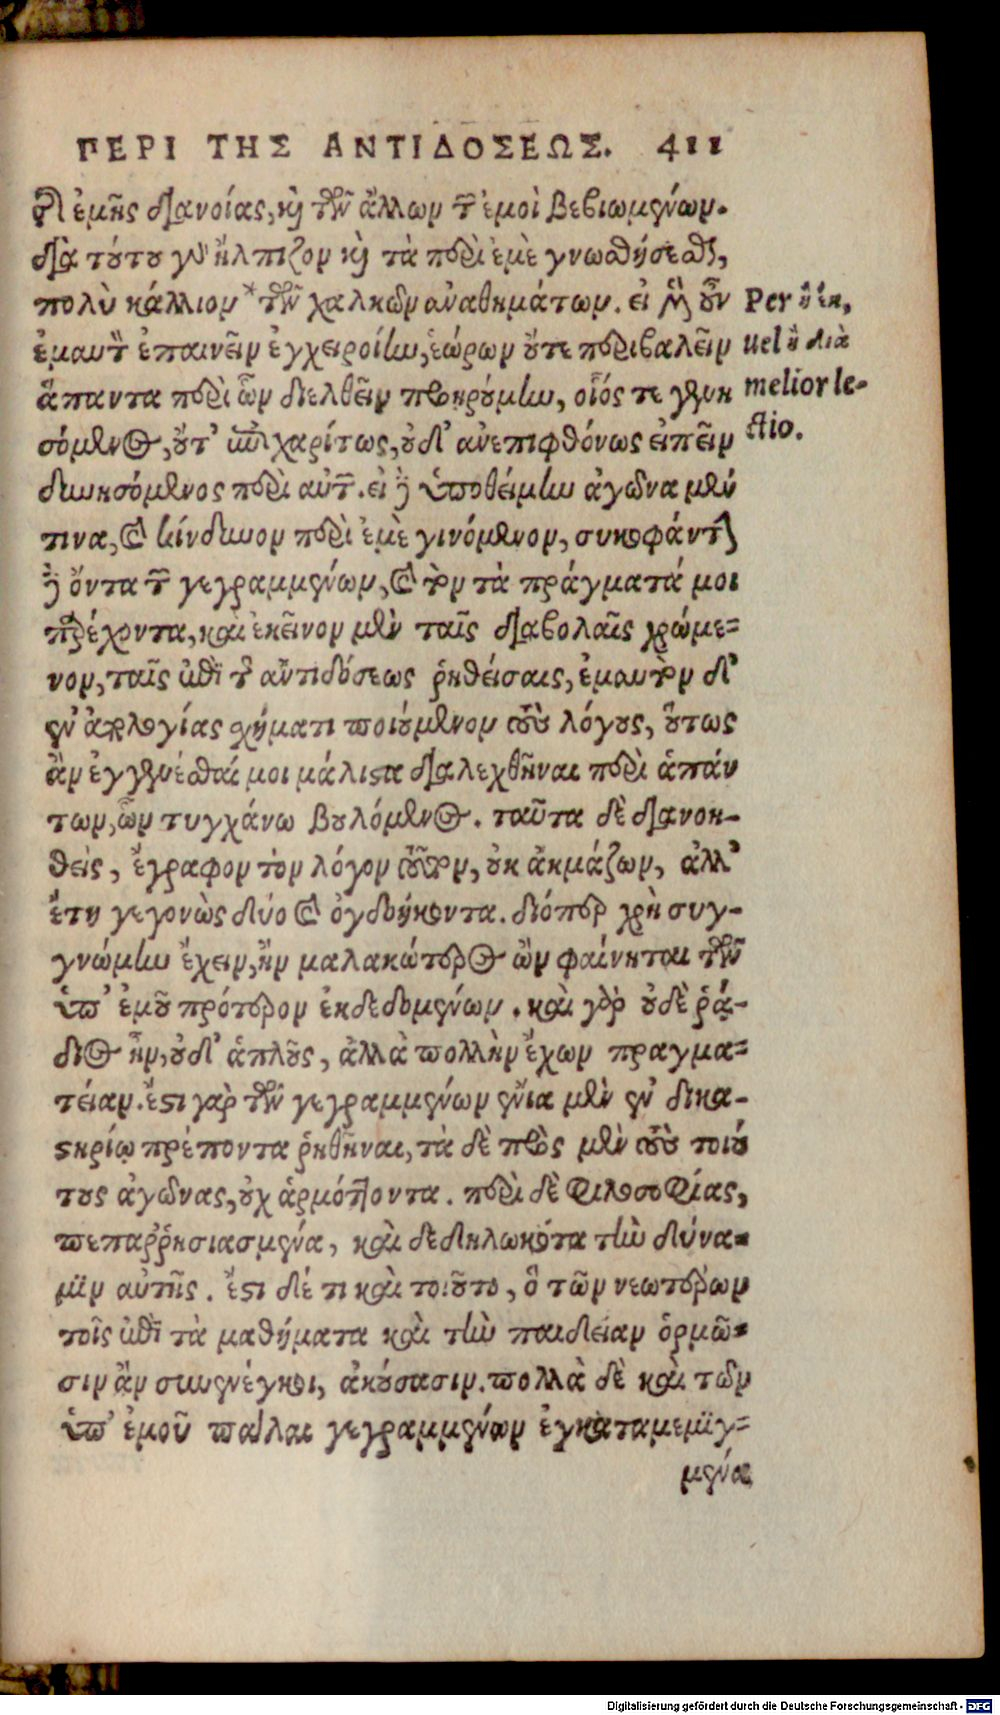 ΠΕΡΙ ΤΗΣ ΑΝΤΙΔΟΣΕΩΣ. 411
τῆς ἐμῆς διανοίας, καὶ τῶν ἄλλων τῶν ἐμοὶ βεβιωμένων.
διὰ τούτου γὰρ ἤλπιζον καὶ τὰ περὶ ἐμὲ γνωσθήσεσθαι,
πολὺ κάλλιον * τῶν χαλκῶν ἀναθημάτων. εἰ μὲν οὖν
ἐμαυτὸν ἐπαινεῖν ἐγχειροίην, ἑώρων οὔτε περιβαλεῖν
ἅπαντα περὶ ὧν διελθεῖν προῃρούμην, οἷός τε γενη
σόμενος, οὔτ' ἐπιχαρίτως, οὐδ' ἀνεπιφθόνως εἰπεῖν
δυνησόμενος περὶ αὐτῶν. εἰ δὲ ὑποθείμην ἀγῶνα μέν
τινα, καὶ κίνδυνον περὶ ἐμὲ γινόμενον, συκοφάντην
δὲ ὄντα τὸν γεγραμμένων, καὶ τὸν τὰ πράγματά μοι
παρέχοντα, καὶ ἐκεῖνον μὲν ταῖς διαβολαῖς χρώμε=
νον, ταῖς ἐπὶ τῆς ἀντιδόσεως ῥηθείσαις, ἐμαυτὸν δ'
ἐν ἀπολογίας σχήματι ποιούμενον τοὺς λόγους, οὕτως
ἂν ἐγγενέσθαι μοι μάλιστα διαλεχθῆναι περὶ ἁπάν
των, ὧν τυγχάνω βουλόμενος. ταῦτα δὲ διανοη-
θεὶς, ἔγραφον τὸν λόγον τοῦτον, οὐκ ἀκμάζων, ἀλλ'
ἔτη γεγονὼς δύο καὶ ὀγδοήκοντα. διόπερ χρὴ συγ-
γνώμην ἔχειν, ἢν μαλακώτερος ὢν φαίνηται τῶν
ὑπ' ἐμοῦ πρότερον ἐκδεδομένων. καὶ γὰρ οὐδὲ ῥᾴ-
διος ἦν, οὐδ' ἁπλοῦς, ἀλλὰ πολλὴν ἔχων πραγμα=
τείαν. ἔστι γὰρ τῶν γεγραμμένων ἔνια μὲν ἐν δικα-
στηρίῳ πρέποντα ῥηθῆναι, τὰ δὲ πρὸς μὲν τοὺς τοιού
τους ἀγῶνας, οὐχ ἁρμόττοντα. περὶ δὲ φιλοσοφίας,
πεπαῤῥησιασμένα, καὶ δεδηλωκότα τὴν δύνα=
μιν αὐτῆς. ἔστι δέ τι καὶ τοιοῦτο, ὃ τῶν νεωτέρων
τοῖς ἐπὶ τὰ μαθήματα καὶ τὴν παιδείαν ὁρμῶ=
σιν ἂν συνενέγκοι, ἀκούσασιν. πολλὰ δὲ καὶ τῶν
ὑπ' ἐμοῦ πάλαι γεγραμμένων ἐγκαταμεμιγ=
μένα
Per ἢ ἐκ,
uel ἢ διὰ
melior le-
ctio.
Digitalisierung gefördert durch die Deutsche Forschungsgemeinschaft - DFG